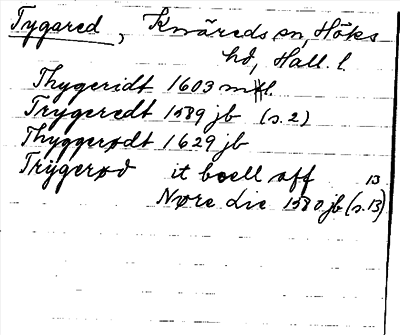 Tygared, Knäreds sn, Höks
hd, Hall. l.
Thygeridt 1603 mtl
Trygeredt 1589 jb (s. 2)
Thyggerødt 1629 jb
Trÿgerød it boell aff 13
Nøre Lie 1580 jb (s. 13)